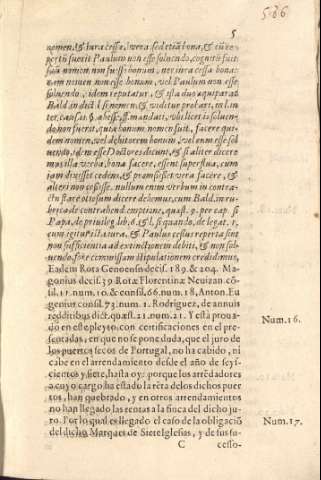 586
5
nomen, & iura cessa, & vera sed etiã bona, & cũ ex-
pertũ fuerit Paulum non esse soluendo, cognitũ fuit
suũ nomen non fuisse bonum, nec iura cessa bona:
nem nomen non esse bonum, vel Paulum non esse
soluendo, idem reputatur, & ista duo æquiparat
Bald. in dict. l. si nomen, & videtur probari, in l. in-
ter, causas. §. abesse, ff. mandati, vbi licet is soluen-
do non fuerit, quia bonum nomen facit, facere qui-
dem nomen, vel debitorem bonum, vel eum esse sol
uendo, idem esse Doctores dicunt, & si aliter dicere
mus illa verba, bona facere, essent superflua, cum
iam dixisset cedere, & promisisset vera facere, &
alteri non cõsisse. nullum enim verbum in contra-
ctu stare otiosum dicere debemus, cum Bald. in ru-
brica de contrahend. emptione, quæst. 9. per cap. si
Papa, de priuileg. lib. 6. & l. si quando, de legat. 1.
cum igitur illa iura, & Paulus cessus reperta sint
non sufficientia ad extinctionem debiti, & non sol-
uendo, fore commissam stipulationem credidimus,
Eadem Rota Genoensis decis. 189. & 204. Ma-
gonius decis. 39 Rotæ Florentinæ Neuizan. cõ-
sil. 11. num. 10. & consil, 66. num. 18, Anton. Eu
genius consil. 73. num. 1. Rodriguez, de annuis
redditibus dict. quæst. 21. num. 21. Y està proua-
do en este pleyto, con certificaciones en el pre-
sentadas, en que no se pone duda, que el juro de
los puertos secos de Portugal, no ha cabido, ni
cabe en el arrendamiento desde el año de seys-
cientos y siete, hasta oy: porque los arrēdadores
a cuyo cargo ha estado la rēta de los dichos puer
tos, han quebrado, y en otros arrendamientos
no han llegado las rentas a la finca del dicho ju-
ro. Por lo qual es llegado el caso de la obligaciõ
del dicho Marques de Siete Iglesias, y de sus su-
C cesso-
Num. 16.
Num. 17.